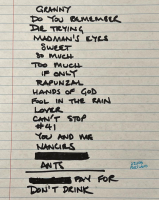 GRANNY
DO YOU REMEMBER
DIE TRYING
MADMAN'S EYES
SWEET
SO MUCH
TOO MUCH
IF ONLY
RAPUNZAL
HANDS OF GOD
FOOL IN THE RAIN
LOVER
CAN'T STOP
#41
YOU AND ME
NANCIES
ANTS
PAY FOR
DON'T DRINK